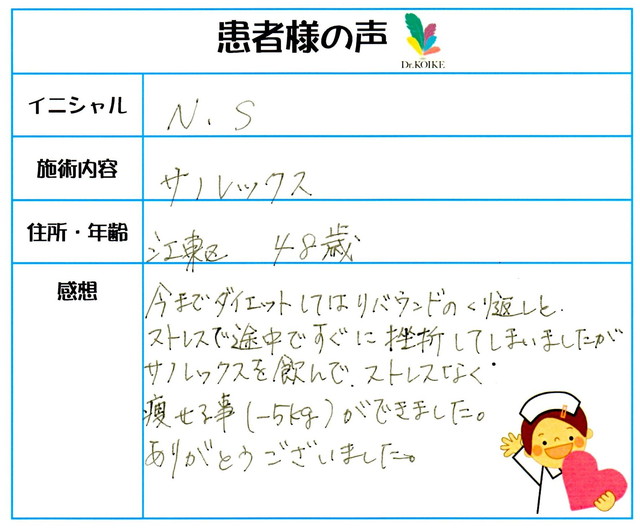 患者様の声
Dr.KOIKE
イニシャル
N.S
施術内容
サノレックス
住所・年齢
江東区 48歳
感想
今までダイエットしてはリバウンドのくり返しと、
ストレスで途中ですぐに挫折してしまいましたが
サノレックスを飲んで、ストレスなく
痩せる事(−5kg)ができました。
ありがとうございました。